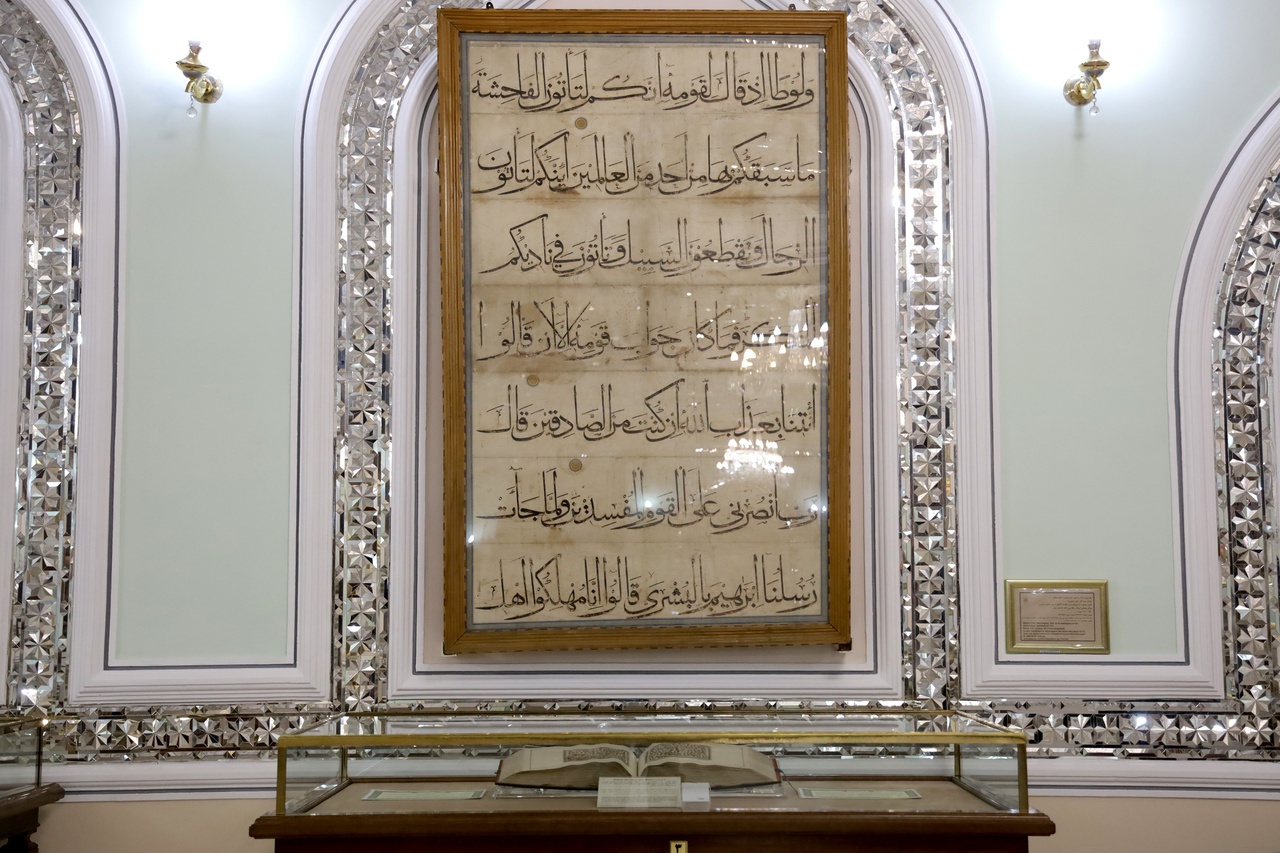 ولوطا اذ قال لقومه انكم لتأتون الفحشة
ما سبقكم بها من أحد من العالمين أئنكم لتأتون
الرجال وتقطعون السبيل وتأتون في ناديكم
المنكر فما كان جواب قومه الا أن قالوا
أئتنا بعذاب الله إن كنت من الصادقين قال
رب انصرني على القوم المفسدين ولما جأت
رسلنا ابرهيم بالبشرى قالوا انا مهلكوا اهل
٣